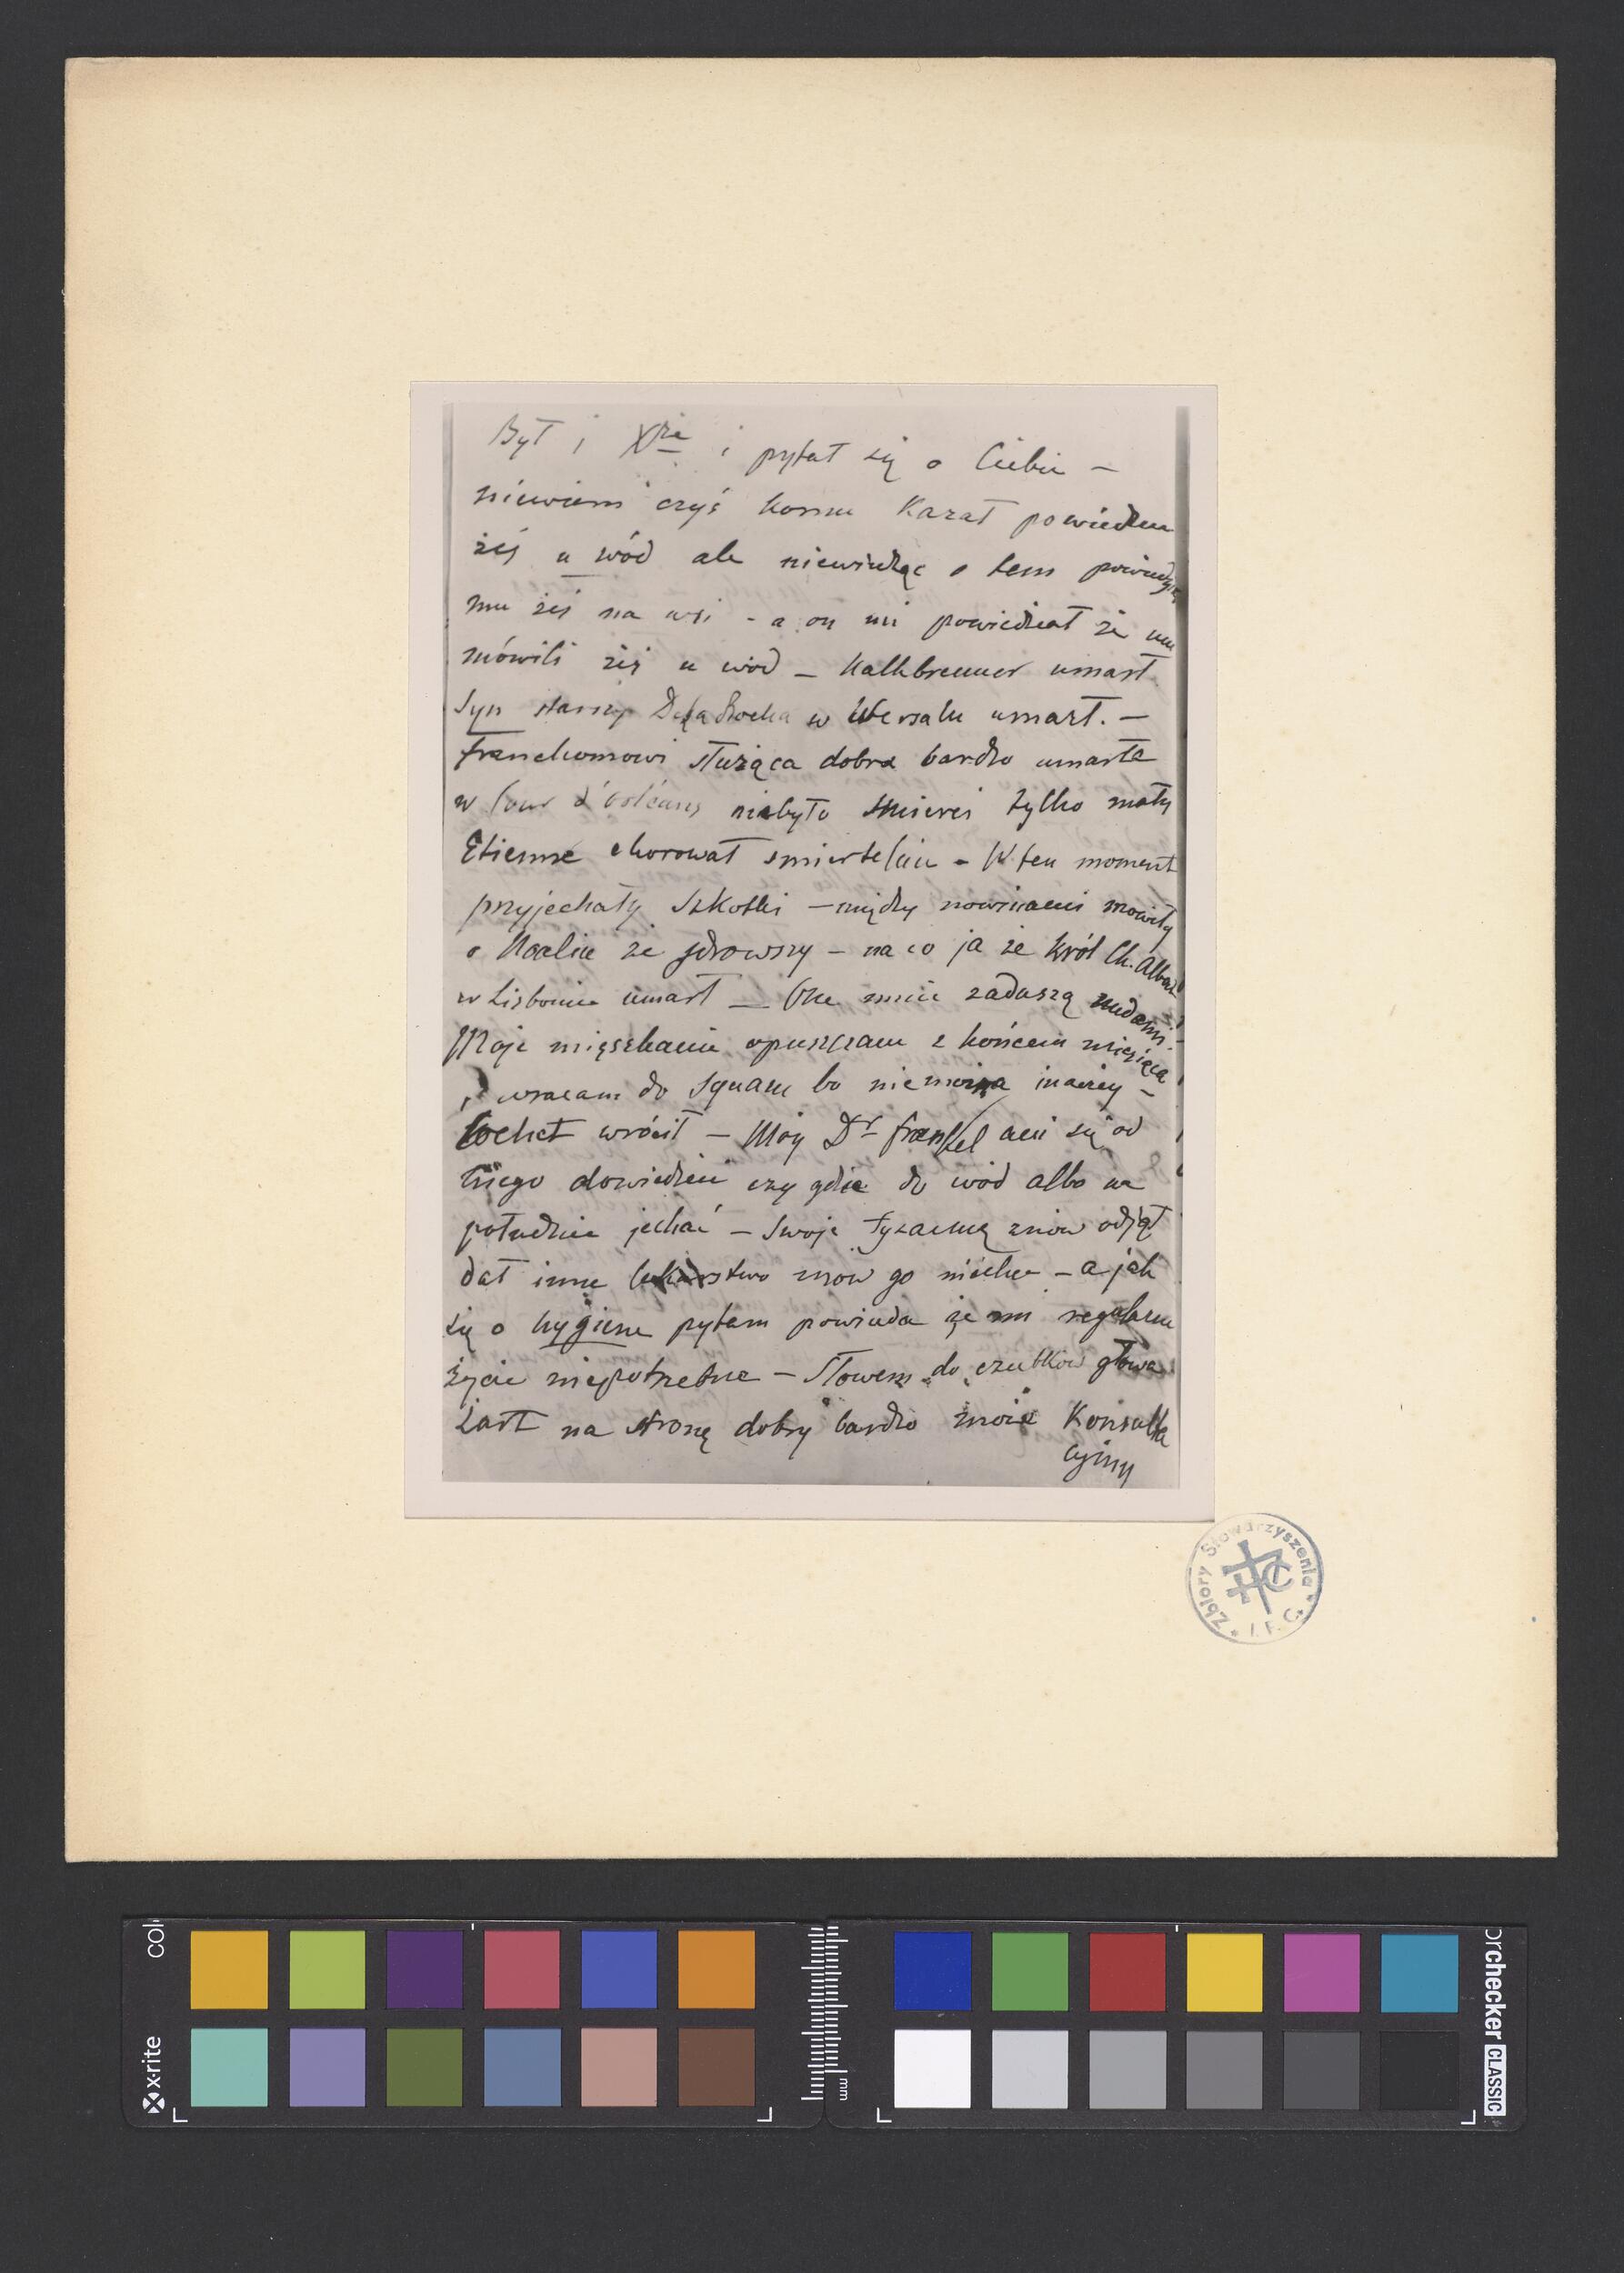 Był i Xże i pytał się o Ciebie –
niewiem czyś komu Kazał powiedzieć
żeś u wód ale niewiedząc o tem powiedział
mu żeś na wsi - a on mi powiedział że mu
mówili żeś u wód – Kalkbrenner umarł
Syn starszy Delaroche w Wersalu umarł. –
Franchomowi służąca dobra bardzo umarła
w Cour d'Orléans niebyło śmierci tylko mały
Etienne chorował śmiertelnie – W ten moment
przyjechały Szkotki – między nowinami mówiły
o Noalie że zdrowszy – na co ja że król Ch. Albert
w Lisbonie umarł – One mnie zaduszą nudami
Moje mięszkanie opuszczam z końcem miesiąca
i wracam do Squaru bo niemożna inaczej –
Cochet wrócił – Mój Dr Fraenkel ani się od
niego dowiedzieć czy gdzie do wód albo na
południe jechać – Swoje tyzannę znów odjął
dał inne lekarstwo znów go niechce – a jak
się o hygienę pytam powiada że mi regularne
życie niepotrzebne – Słowem do czubków głowa
Żart na stronę dobry bardzo może Konsulta
cyjny
Zbiory Stowarzyszenia * I. F. C. *
x-rite
col
orchecker CLASSIC
mm